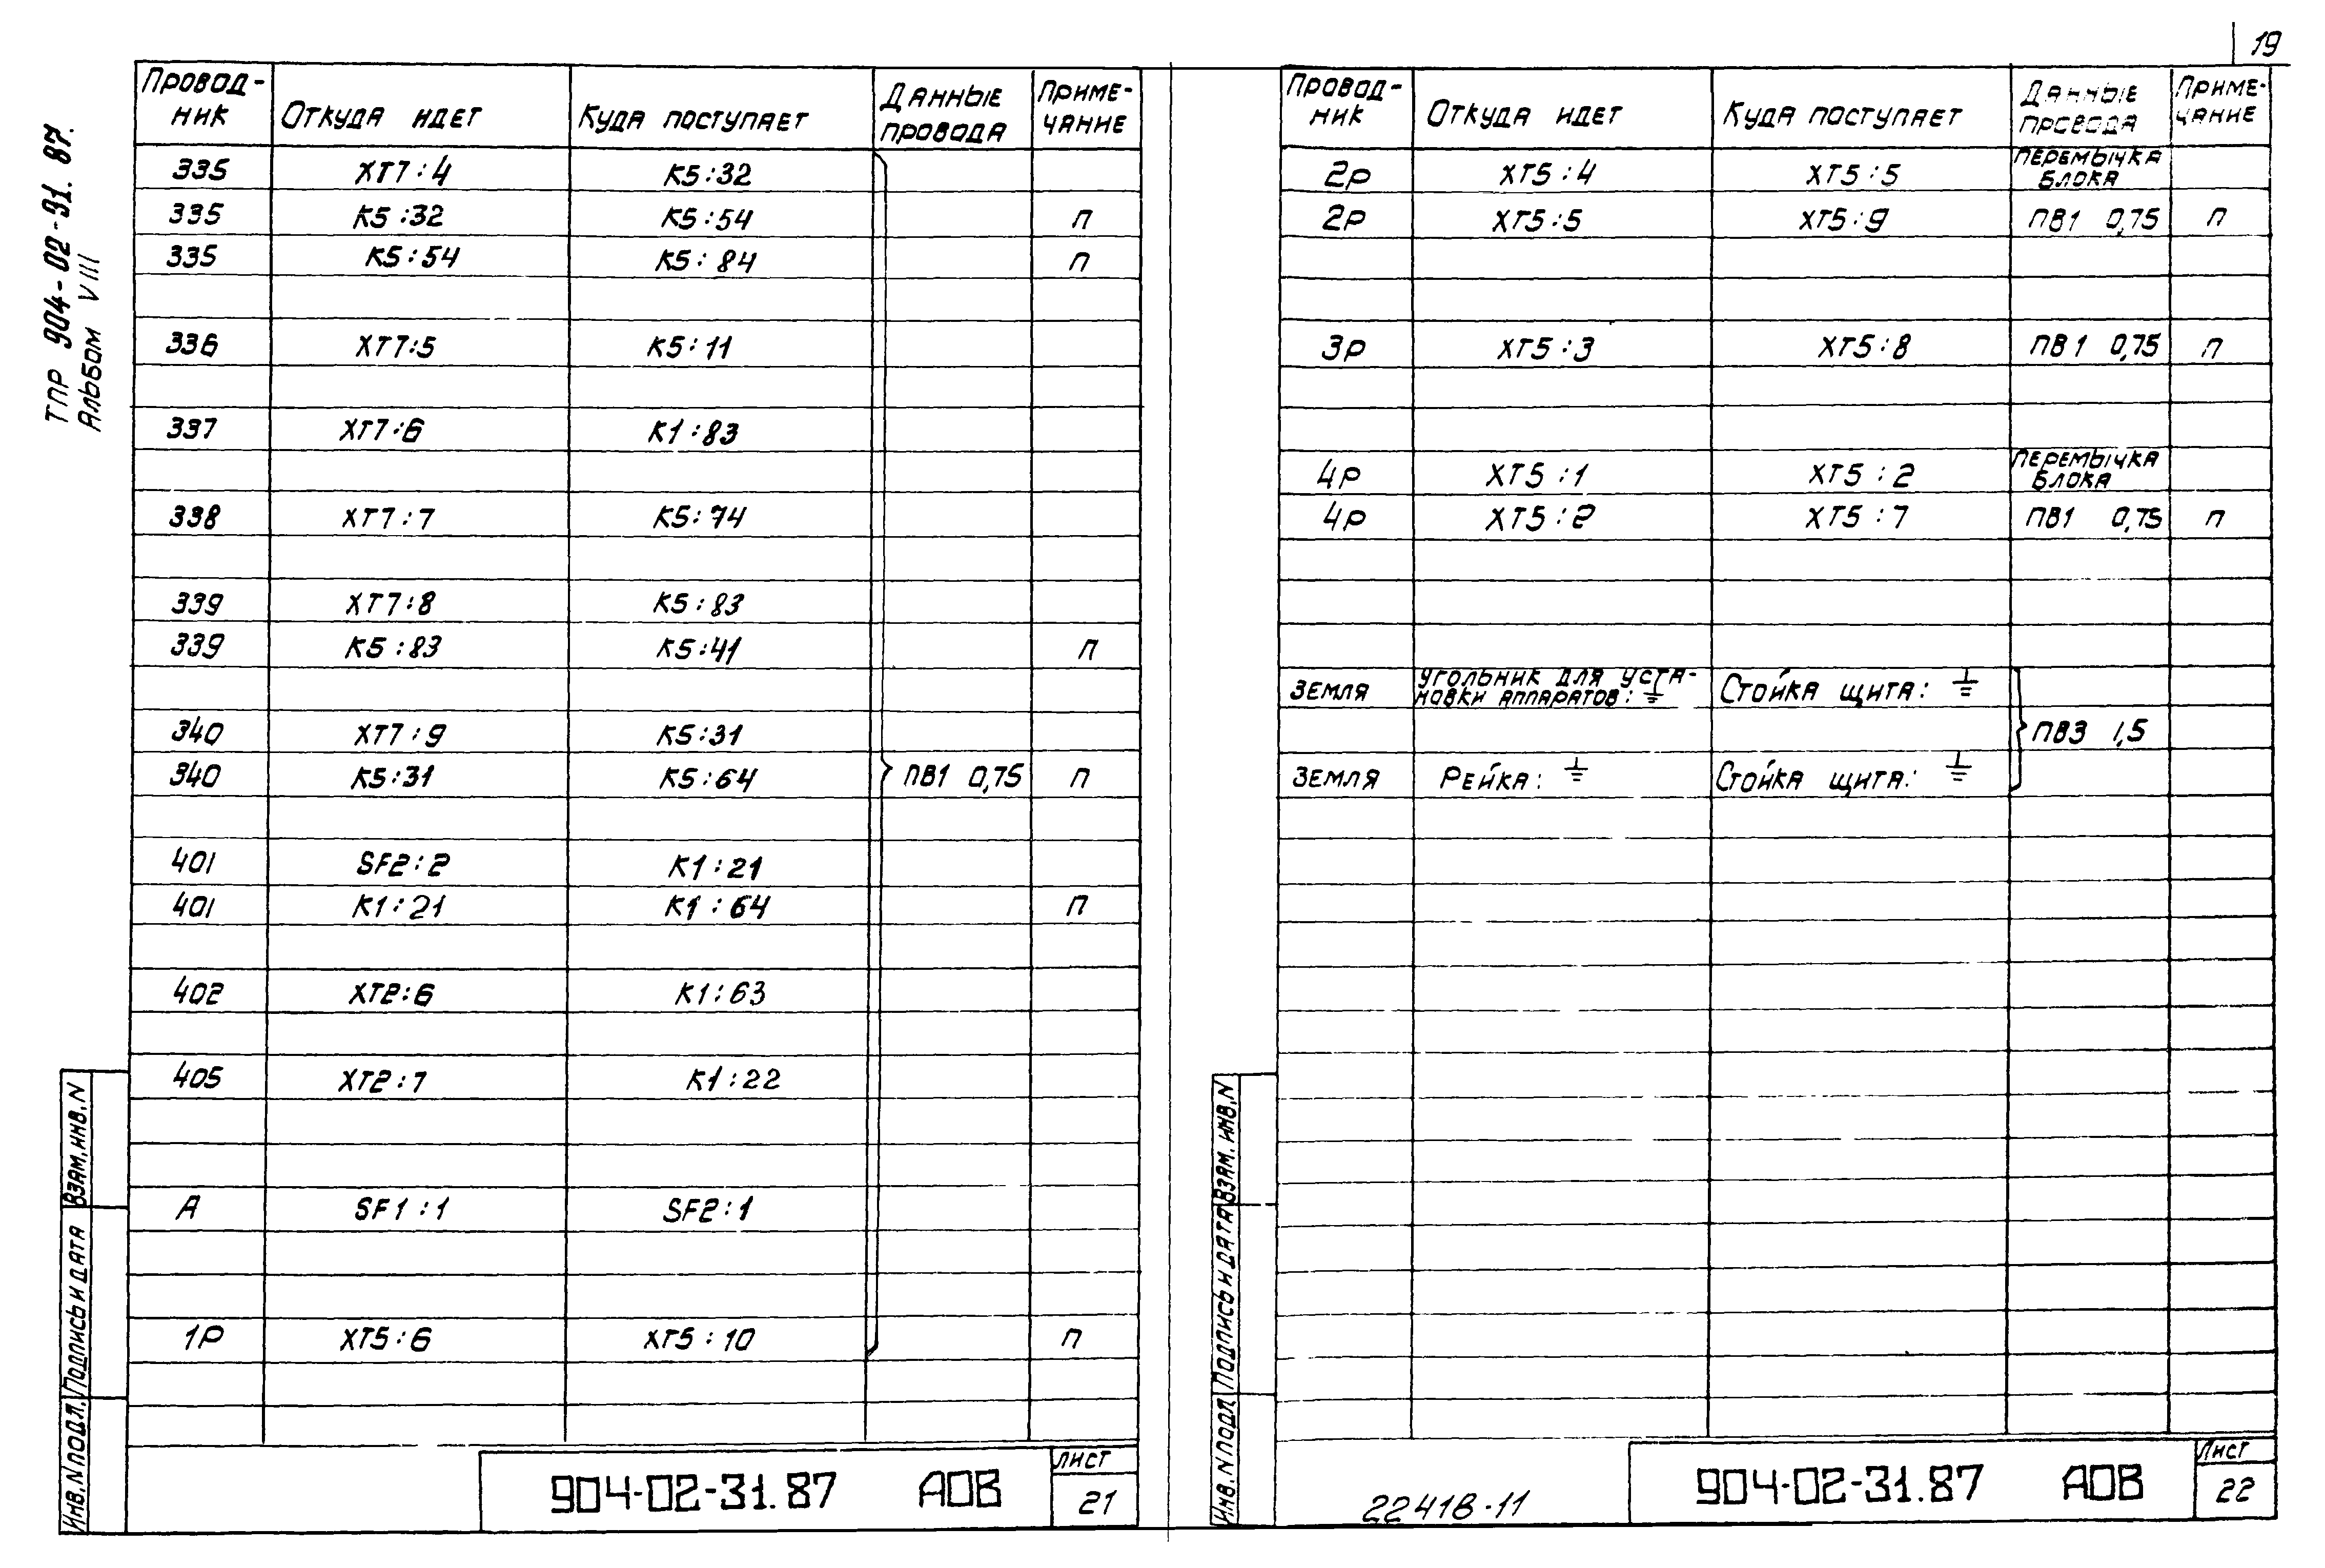 19
ТПР 904-02-31.87.
Альбом VIII
Провод-
ник Откуда идет Куда поступает Данные провода Примечание
335 XT7:4 K5:32
335 K5:32 K5:54 п
335 K5:54 K5:84 п
336 XT7:5 K5:11
337 XT7:6 K1:83
338 XT7:7 K5:74
339 XT7:8 K5:83
339 K5:83 K5:41 п
340 XT7:9 K5:31
340 K5:31 K5:64 ПВ1 0,75 п
401 SF2:2 K1:21
401 K1:21 K1:64 п
402 XT2:6 K1:63
405 XT2:7 K1:22
A SF1:1 SF2:1
1P XT5:6 XT5:10 п
Инв. N подл. Подпись и дата Взам. инв. N
904-02-31.87 АОВ
Лист
21
Провод-
ник Откуда идет Куда поступает Данные провода Примечание
2P XT5:4 XT5:5 Перемычка блока
2P XT5:5 XT5:9 ПВ1 0,75 п
3P XT5:3 XT5:8 ПВ1 0,75 п
4P XT5:1 XT5:2 Перемычка блока
4P XT5:2 XT5:7 ПВ1 0,75 п
Земля Угольник для уста-
новки аппаратов: ⏚ Стойка щита: ⏚
ПВ3 1,5
Земля Рейка: ⏚ Стойка щита: ⏚
Инв. N подл. Подпись и дата Взам. инв. N
22418-11
904-02-31.87 АОВ
Лист
22